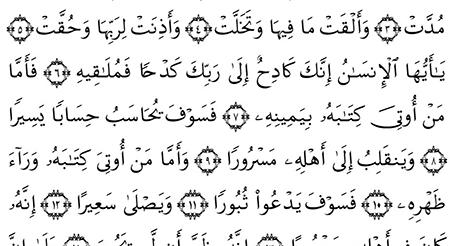 مُدَّتْ ﴿٣﴾ وَأَلْقَتْ مَا فِيهَا وَتَخَلَّتْ ﴿٤﴾ وَأَذِنَتْ لِرَبِّهَا وَحُقَّتْ ﴿٥﴾
يَٰٓأَيُّهَا ٱلْإِنسَٰنُ إِنَّكَ كَادِحٌ إِلَىٰ رَبِّكَ كَدْحًا فَمُلَٰقِيهِ ﴿٦﴾ فَأَمَّا
مَنْ أُوتِىَ كِتَٰبَهُۥ بِيَمِينِهِۦ ﴿٧﴾ فَسَوْفَ يُحَاسَبُ حِسَابًا يَسِيرًا
﴿٨﴾ وَيَنقَلِبُ إِلَىٰٓ أَهْلِهِۦ مَسْرُورًا ﴿٩﴾ وَأَمَّا مَنْ أُوتِىَ كِتَٰبَهُۥ وَرَآءَ
ظَهْرِهِۦ ﴿١٠﴾ فَسَوْفَ يَدْعُوا۟ ثُبُورًا ﴿١١﴾ وَيَصْلَىٰ سَعِيرًا ﴿١٢﴾ إِنَّهُۥ